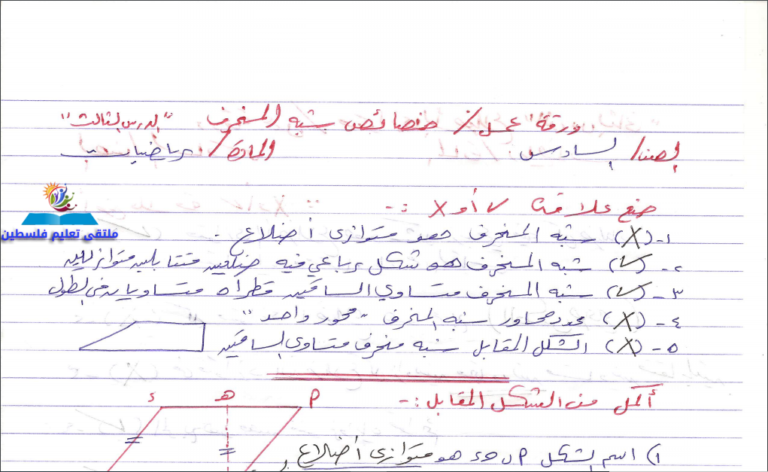 ورقة عمل / خصائص شبه المنحرف "الدرس الثالث"
الصف / السادس المادة / رياضيات
ضع علامة √ أو X :-
١- (X) شبه المنحرف هو متوازي أضلاع .
٢- (√) شبه المنحرف هو شكل رباعي فيه ضلعين متقابلين متوازيين
٣- (√) شبه المنحرف متساوي الساقين قطراه متساويان في الطول
٤- (X) عدد محاور شبه المنحرف "محور واحد"
٥- (X) الشكل المقابل شبه منحرف متساوي الساقين
ملتقى تعليم فلسطين
أكمل من الشكل المقابل :-
ء هـ م
١) اسم الشكل هو متوازي أضلاع